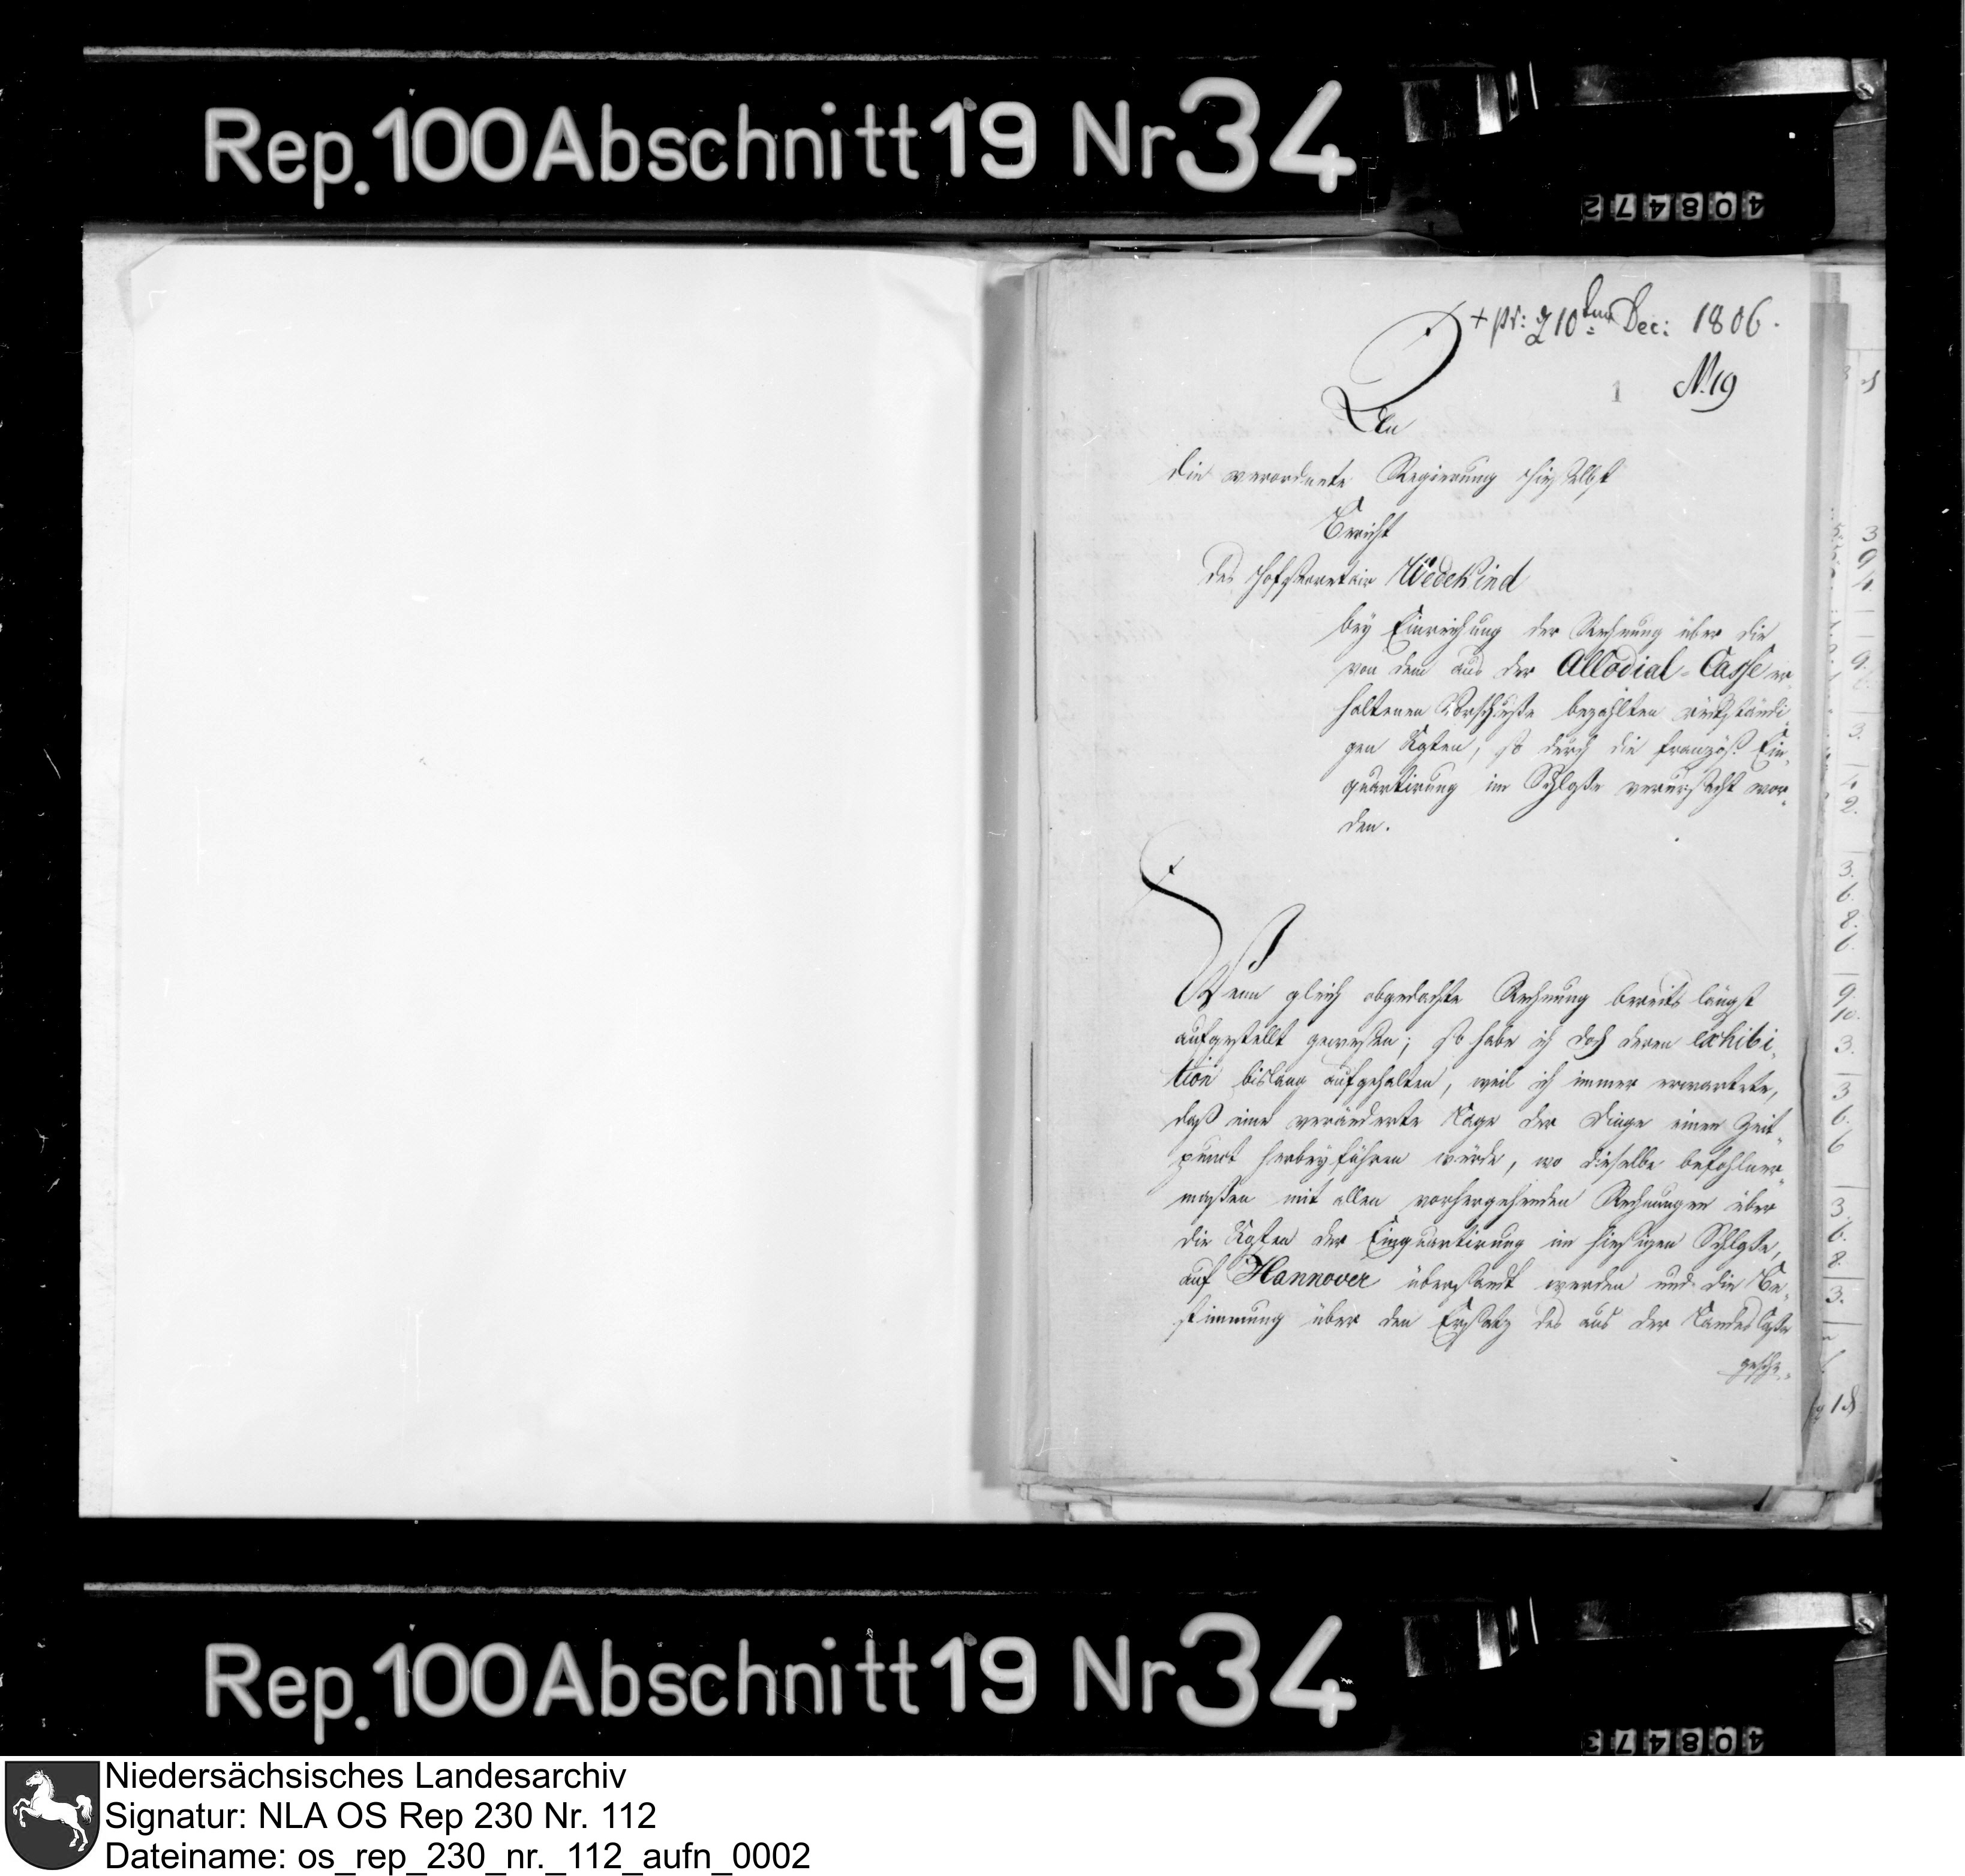 Rep. 100 Abschnitt 19 Nr 34
408472
+ pr: d 10ten Dec: 1806.
1 N. 19
An
die verordnete Regierung hieselbst
Bericht
des Hofsecretair Wedekind
bey Einreichung der Rechnung über die
von dem aus der Allodial-Casse er-
haltenen Vorschusse bezahlten rückständi-
gen Kosten, so durch die französ. Ein-
quartirung im Schlosse verursacht wor-
den.
Wenn gleich obgedachte Rechnung bereits längst
aufgestellt gewesen; so habe ich doch deren exhibi-
tion bislang aufgehalten, weil ich immer erwartete,
daß eine veränderte Lage der Dinge einen Zeit-
punct herbeyführen würde, wo dieselbe befohlner-
maßen mit allen vorhergehenden Rechnungen über
die Kosten der Einquartirung im hiesigen Schlosse,
auf Hannover übersandt werden und die Be-
stimmung über den Ersatz des aus der LandesCasse
gesche-
Rep. 100 Abschnitt 19 Nr 34
408473
Niedersächsisches Landesarchiv
Signatur: NLA OS Rep 230 Nr. 112
Dateiname: os_rep_230_nr._112_aufn_0002